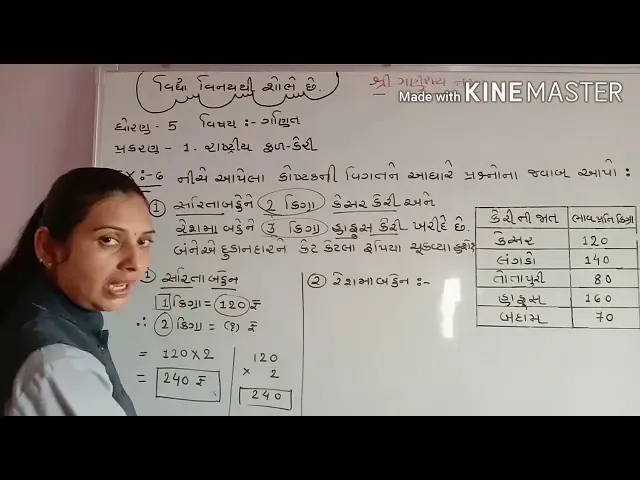 વિદ્યા વિનયથી શોભે છે.
શ્રી ગણેશાય નમઃ
Made with KINEMASTER
ધોરણ - 5 વિષય :- ગણિત
પ્રકરણ - 1. રાષ્ટ્રીય ફળ-કેરી
EX :- 6 નીચે આપેલા કોષ્ટકની વિગતને આધારે પ્રશ્નોના જવાબ આપો :
① સરિતાબહેને 2 કિગ્રા કેસર કેરી અને
રેશમાબહેને 3 કિગ્રા હાફુસ કેરી ખરીદે છે.
બંનેએ દુકાનદારને કેટ કેટલા રૂપિયા ચૂકવ્યા હશે?
કેરીની જાત ભાવ પ્રતિ કિગ્રા
કેસર 120
લંગડો 140
તોતાપુરી 80
હાફુસ 160
બદામ 70
① સરિતાબહેન
1 કિગ્રા = 120 ₹
∴ 2 કિગ્રા = (?) ₹
= 120 × 2
= 240 ₹
120
× 2
240
② રેશમાબહેન :-